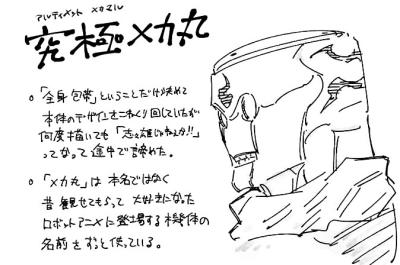 アルティメット メカマル
究極メカ丸
○「全身包帯」ということだけ決めて
本体のデザインをこねくり回していたが
何度描いても「志々雄じゃねぇか!!」
ってなって途中で諦めた。
○「メカ丸」は本名ではなく
昔観せてもらって大好きになった
ロボットアニメに登場する機体の
名前をずっと使っている。